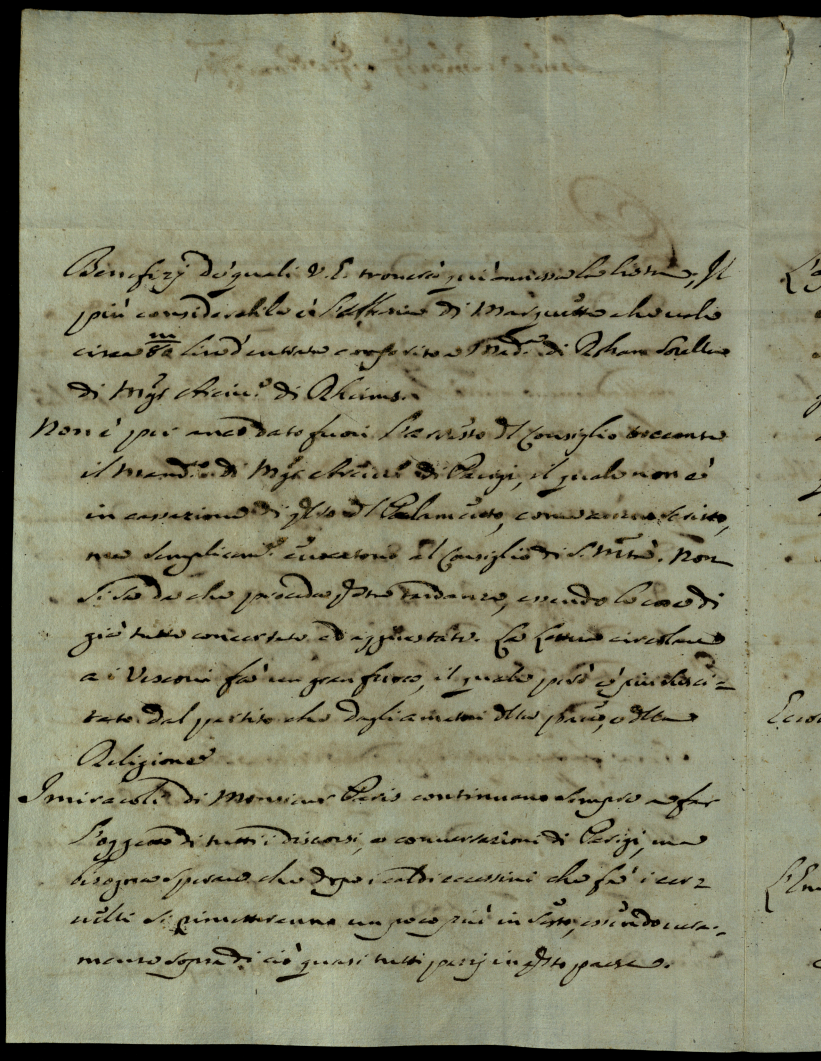 Benefizj de quali V. E. troverà quì annessa la lista, Il
più considerabile è l'Abbazia di Marquette che vale
circa 80 lire d'entrata conferita a Mad.ª di Rohan Sorella
di Mg.r Arciv.º di Rheims.
Non è per anco dato fuori l'arresto del Consiglio toccante
il Mand.º di Mg.r Arciv.º di Parigi, il quale non è
in cassazione di q̃llo del Parlam̃to, come aveva scritto,
ma semplicem.e evocazione al Consiglio di S. M.tà. Non
si sà da che proceda q̃sta tardanza, essendo le cose di
già tutte concertate ed aggiustate. La Lettera circolare
a i Vescovi fà un gran fuoco, il quale però è più
dal partito che dagli amatori d̃lla pace, e d̃lla
Religione
I miracoli di Monsieur Paris continuano sempre a far
l'oggetto di tutti i discorsi, e conversazioni di Parigi, ma
bisogna sperare che dopo i caldi eccessivi che fà i cer=
velli si rimetteranno un poco più in sesto, essendo vera=
mente sopra di ciò quasi tutti pazzj in q̃sto paese.
L'
L'Em